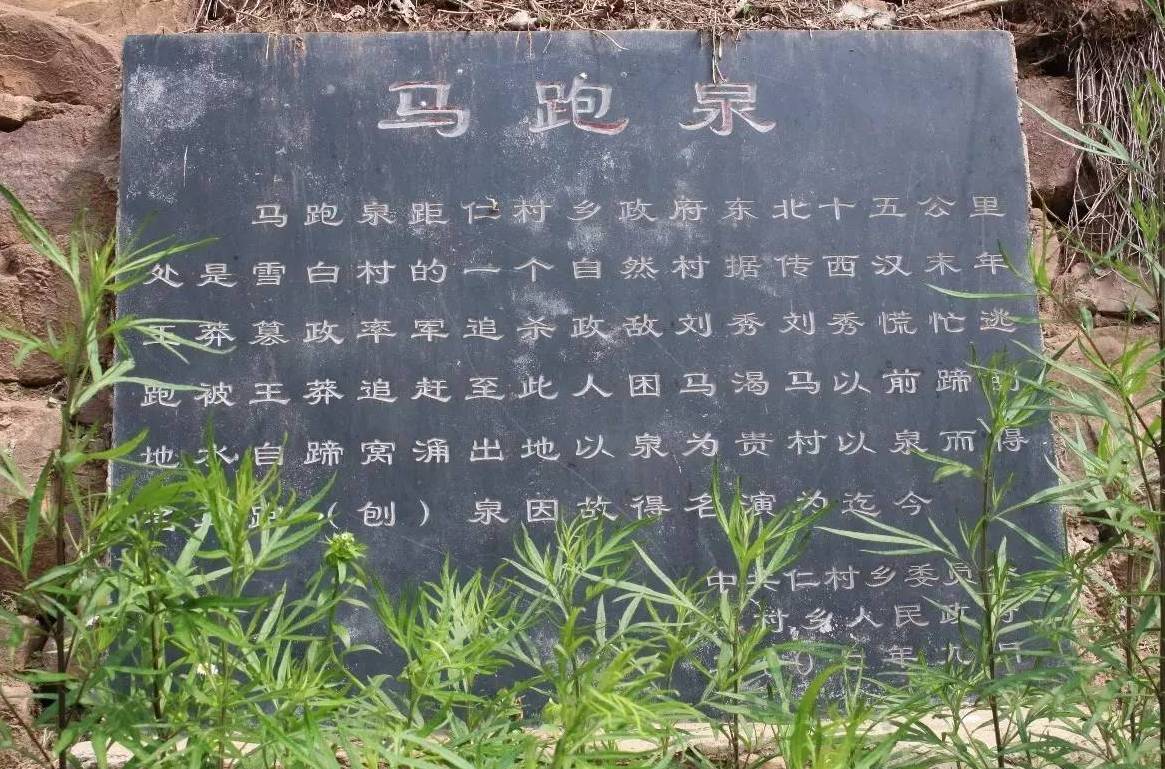 马跑泉
马跑泉距仁村乡政府东北十五公里
处是雪白村的一个自然村据传西汉末年
王莽墓政率军追杀政敌刘秀刘秀慌忙逃
跑被王莽追赶至此人困马渴马以前蹄刨
地水自蹄窝涌出地以泉为贵村以泉而得
名 跑(刨)泉因故得名演为迄今
中共仁村乡委员
村乡人民政府
年九月